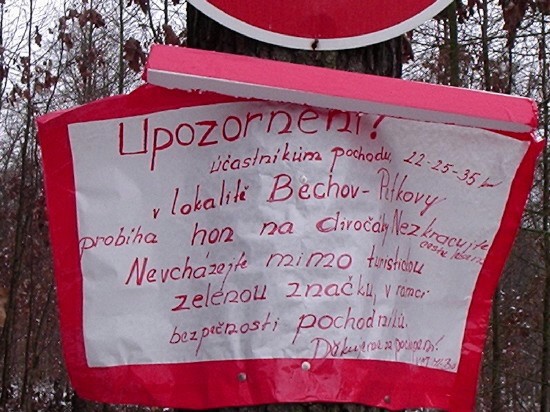 Upozornění!
účastníkům pochodu, 22-25-35 km
v lokalitě Běchov-Petkovy
probíhá hon na divočáky Nezkracujte
Nevcházejte mimo turistickou
zelenou značku, v rámci
bezpečnosti pochodníků.
Děkujeme za pochopení!